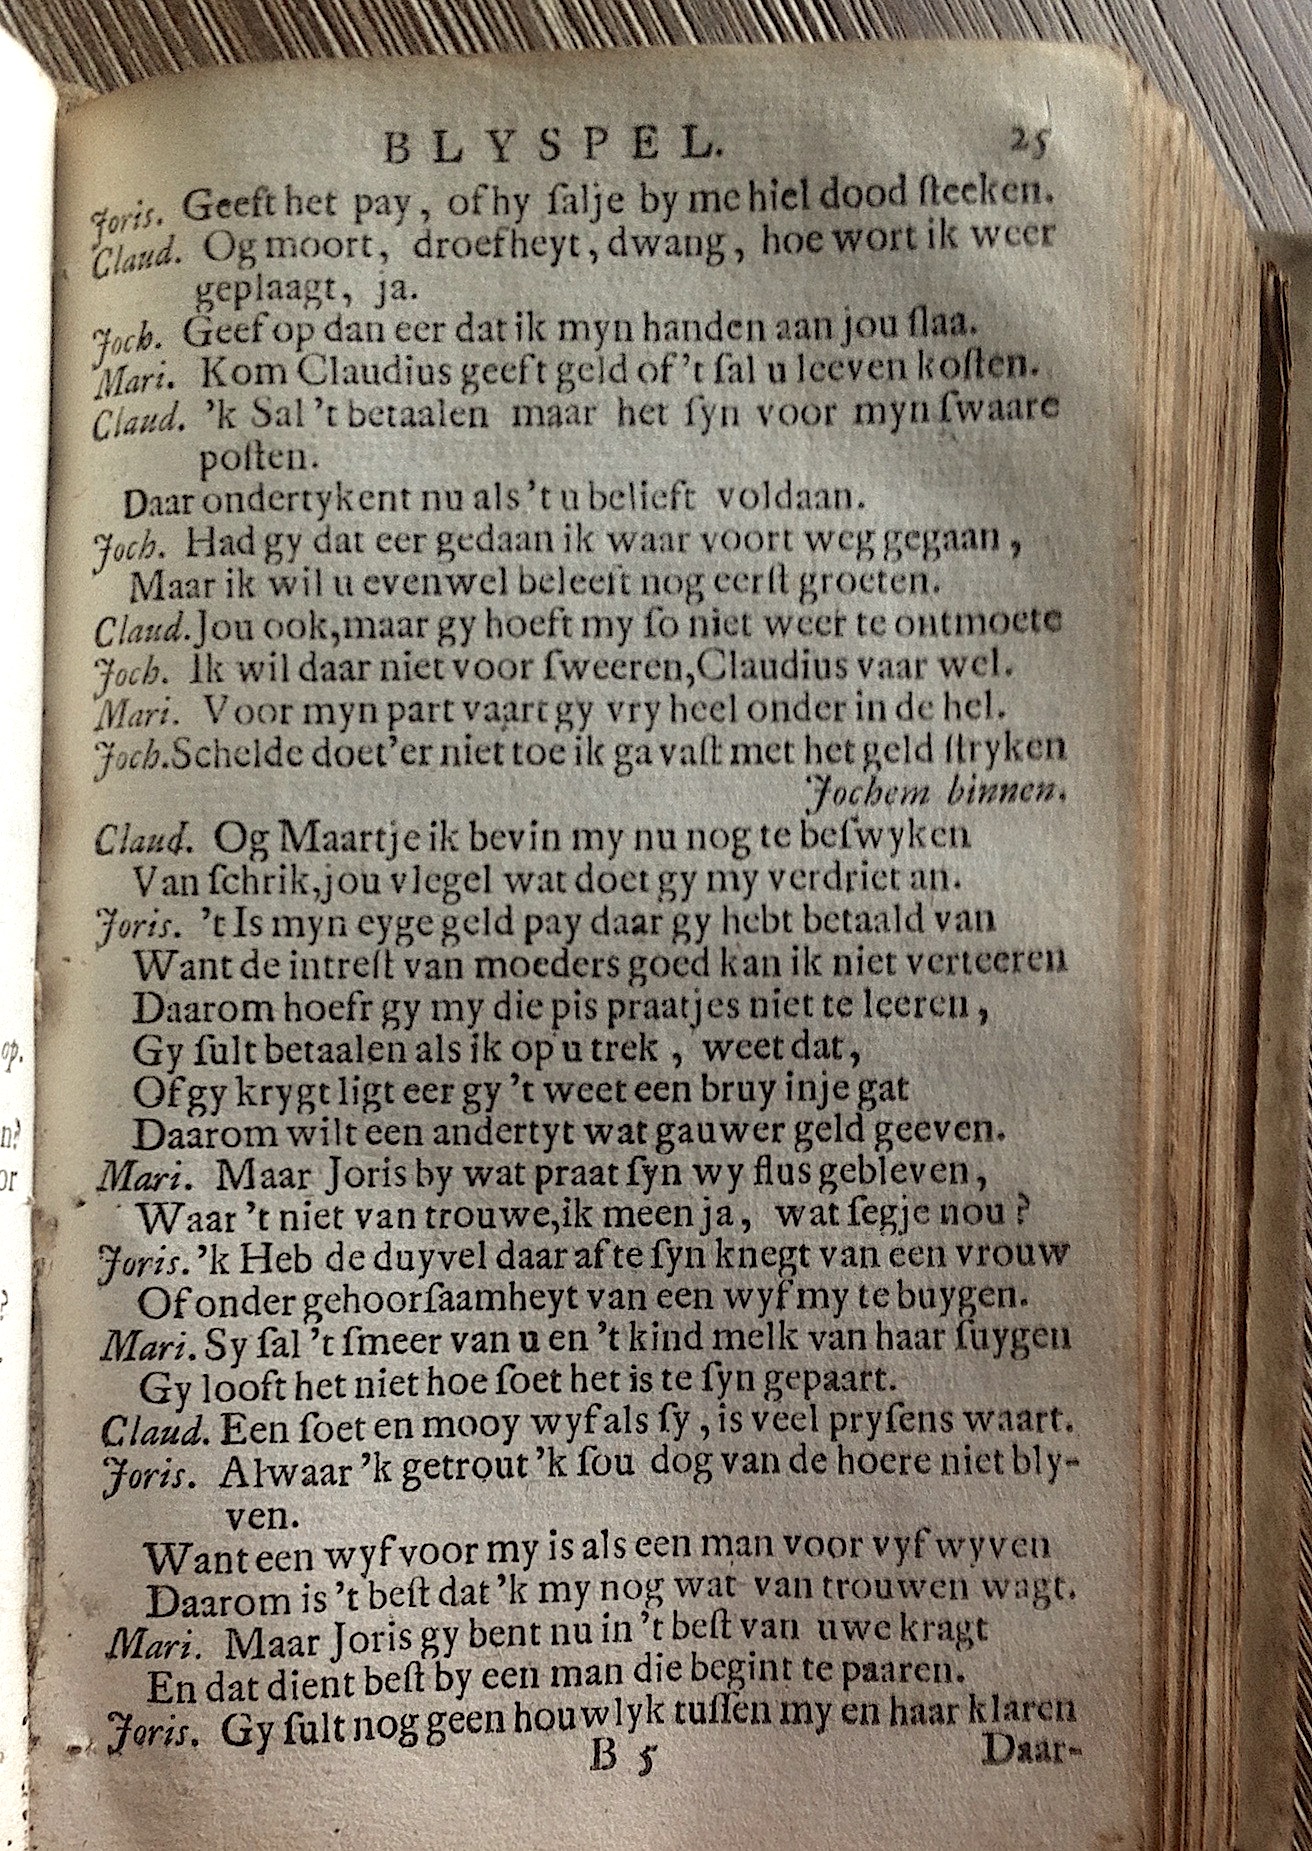 BLYSPEL. 25
Joris. Geeft het pay, of hy ſalje by me hiel dood ſteeken.
Claud. Og moort, droefheyt, dwang, hoe wort ik weer
geplaagt, ja.
Joch. Geef op dan eer dat ik myn handen aan jou ſlaa.
Mari. Kom Claudius geeft geld of 't ſal u leeven koſten.
Claud. 'k Sal 't betaalen maar het ſyn voor myn ſwaare
poſten.
Daar ondertykent nu als 't u belieft voldaan.
Joch. Had gy dat eer gedaan ik waar voort weg gegaan,
Maar ik wil u evenwel beleeft nog eerſt groeten.
Claud. Jou ook, maar gy hoeft my ſo niet weer te ontmoete
Joch. Ik wil daar niet voor ſweeren, Claudius vaar wel.
Mari. Voor myn part vaart gy vry heel onder in de hel.
Joch. Schelde doet'er niet toe ik ga vaſt met het geld ſtryken
Jochem binnen.
Claud. Og Maartje ik bevin my nu nog te beſwyken
Van ſchrik, jou vlegel wat doet gy my verdriet an.
Joris. 't Is myn eyge geld pay daar gy hebt betaald van
Want de intreſt van moeders goed kan ik niet verteeren
Daarom hoefr gy my die pis praatjes niet te leeren,
Gy ſult betaalen als ik op u trek, weet dat,
Of gy krygt ligt eer gy 't weet een bruy in je gat
Daarom wilt een andertyt wat gauwer geld geeven.
Mari. Maar Joris by wat praat ſyn wy flus gebleven,
Waar 't niet van trouwe, ik meen ja, wat ſegje nou?
Joris. 'k Heb de duyvel daar af te ſyn knegt van een vrouw
Of onder gehoorſaamheyt van een wyf my te buygen.
Mari. Sy ſal 't ſmeer van u en 't kind melk van haar ſuygen
Gy looft het niet hoe ſoet het is te ſyn gepaart.
Claud. Een ſoet en mooy wyf als ſy, is veel pryſens waart.
Joris. Alwaar 'k getrout 'k ſou dog van de hoere niet bly-
ven.
Want een wyf voor my is als een man voor vyf wyven
Daarom is 't beſt dat 'k my nog wat van trouwen wagt.
Mari. Maar Joris gy bent nu in 't beſt van uwe kragt
En dat dient beſt by een man die begint te paaren.
Joris. Gy ſult nog geen houwlyk tuſſen my en haar klaren
B 5 Daar-
op.
n?
or
?